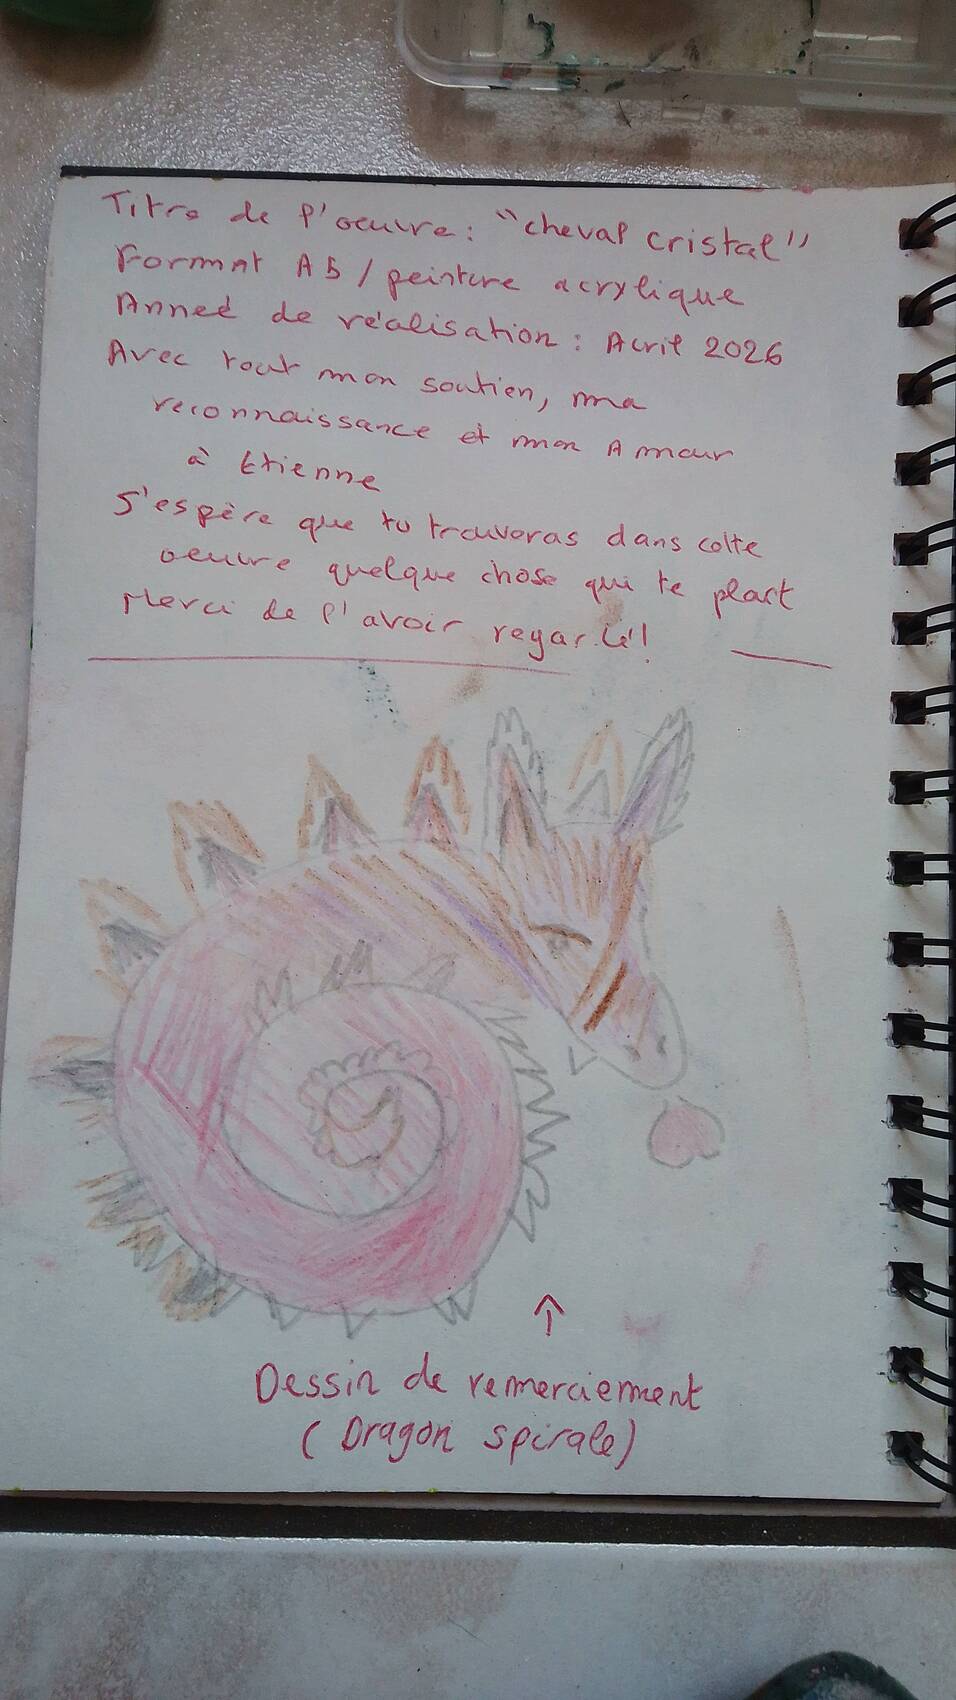 Titre de l'oeuvre : "cheval cristal"
Format A5 / peinture acrylique
Anneé de réalisation : Avril 2026
Avec tout mon soutien, ma
reconnaissance et mon Amour
à Etienne
J'espère que tu trouveras dans cette
oeuvre quelque chose qui te plait
Merci de l'avoir regardé !
Dessin de remerciement
(Dragon spirale)